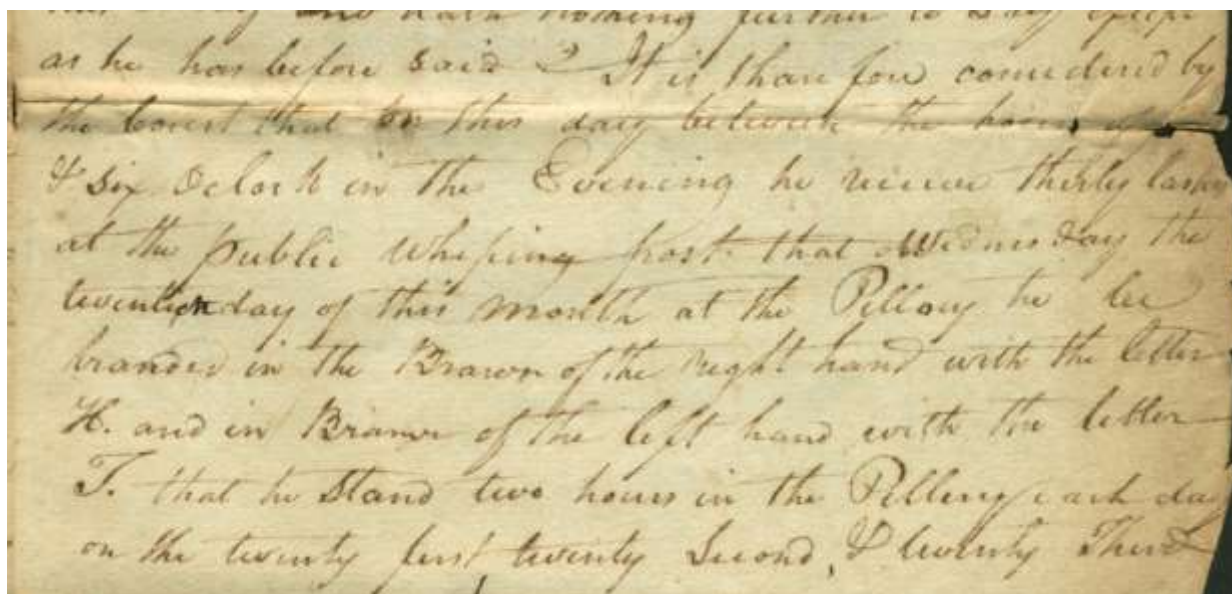 and hath nothing further to Say
as he has before Said It is thare fore considered by
the Court that on this day between the hours of
& six Oclock in the Evening he receive thirty lashes
at the public whiping post that Wednesday the
twentieth day of this month at the Pillory he be
branded in the Brawn of the right hand with the letter
H. and in Brawn of the left hand with the letter
T. that he Stand two hours in the Pillory each day
on the twenty first twenty Second, & twenty Third